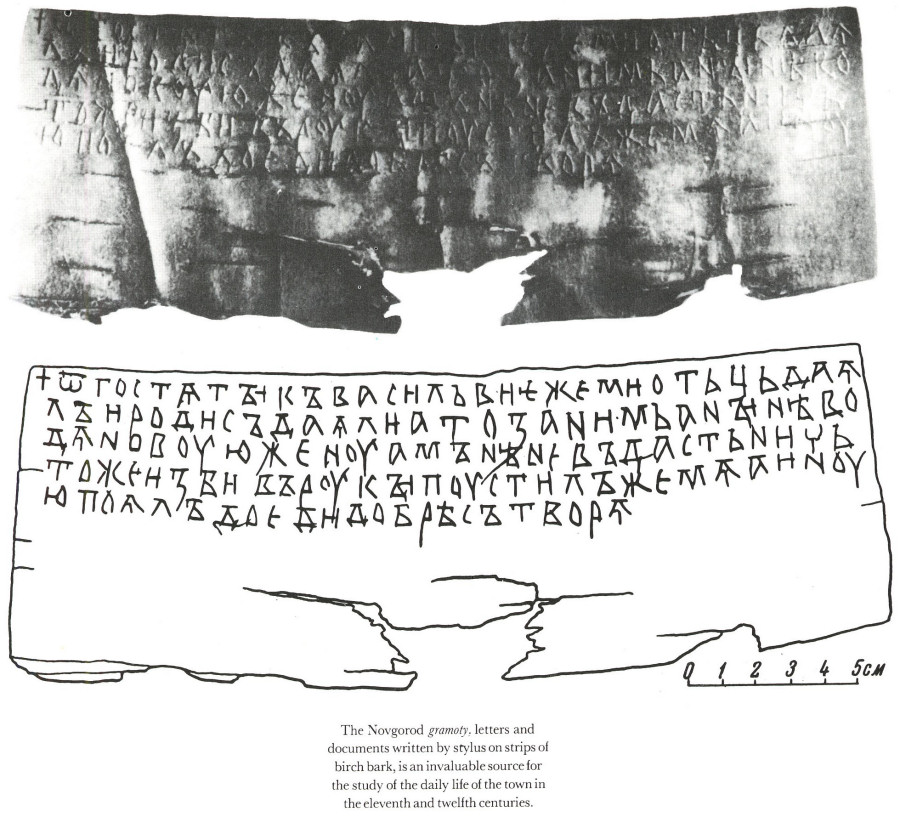 + ѿ гостѧтъі къ васильви ѥже ми отьць даѧ
лъ и роди съдаѧли а то за нимь а нъінѣ во
дѧ новоую женоу а мънѣ не въдасть ничь
тоже избивъ роукъі поустилъ же мѧ а иноу
ю поѧлъ доеди добрѣ сътворѧ
0 1 2 3 4 5см
The Novgorod gramoty, letters and
documents written by stylus on strips of
birch bark, is an invaluable source for
the study of the daily life of the town in
the eleventh and twelfth centuries.